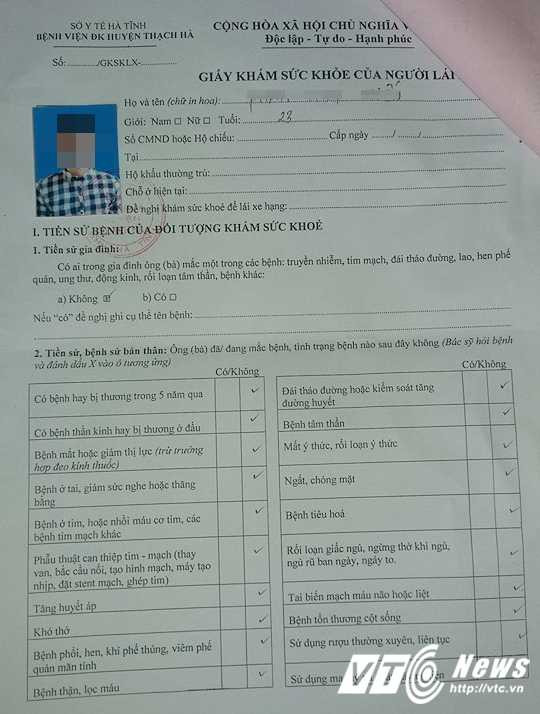 SỞ Y TẾ HÀ TĨNH
BỆNH VIỆN ĐK HUYỆN THẠCH HÀ
CỘNG HÒA XÃ HỘI CHỦ NGHĨA V
Độc lập - Tự do - Hạnh phúc
Số: ............/GKSKLX-............
GIẤY KHÁM SỨC KHỎE CỦA NGƯỜI LÁI
Họ và tên (chữ in hoa):
Giới: Nam □ Nữ □ Tuổi: 23
Số CMND hoặc Hộ chiếu: Cấp ngày ....../....../......
Tại
Hộ khẩu thường trú:
Chỗ ở hiện tại:
Đề nghị khám sức khoẻ để lái xe hạng:
I. TIỀN SỬ BỆNH CỦA ĐỐI TƯỢNG KHÁM SỨC KHOẺ
1. Tiền sử gia đình:
Có ai trong gia đình ông (bà) mắc một trong các bệnh: truyền nhiễm, tim mạch, đái tháo đường, lao, hen phế
quản, ung thư, động kinh, rối loạn tâm thần, bệnh khác:
a) Không ☒ b) Có □
Nếu “có” đề nghị ghi cụ thể tên bệnh:
2. Tiền sử, bệnh sử bản thân: Ông (bà) đã/ đang mắc bệnh, tình trạng bệnh nào sau đây không (Bác sỹ hỏi bệnh
và đánh dấu X vào ô tương ứng)
Có/Không
Có bệnh hay bị thương trong 5 năm qua ✓
Có bệnh thần kinh hay bị thương ở đầu ✓
Bệnh mắt hoặc giảm thị lực (trừ trường
hợp đeo kính thuốc) ✓
Bệnh ở tai, giảm sức nghe hoặc thăng
bằng ✓
Bệnh ở tim, hoặc nhồi máu cơ tim, các
bệnh tim mạch khác ✓
Phẫu thuật can thiệp tim - mạch (thay
van, bắc cầu nối, tạo hình mạch, máy tạo
nhịp, đặt stent mạch, ghép tim) ✓
Tăng huyết áp ✓
Khó thở ✓
Bệnh phổi, hen, khí phế thũng, viêm phế
quản mãn tính ✓
Bệnh thận, lọc máu ✓
Có/Không
Đái tháo đường hoặc kiểm soát tăng
đường huyết ✓
Bệnh tâm thần ✓
Mất ý thức, rối loạn ý thức ✓
Ngất, chóng mặt ✓
Bệnh tiêu hoá ✓
Rối loạn giấc ngủ, ngừng thở khi ngủ,
ngủ rũ ban ngày, ngáy to. ✓
Tai biến mạch máu não hoặc liệt ✓
Bệnh tổn thương cột sống ✓
Sử dụng rượu thường xuyên, liên tục ✓
Sử dụng
VTC News
http://vtc.vn